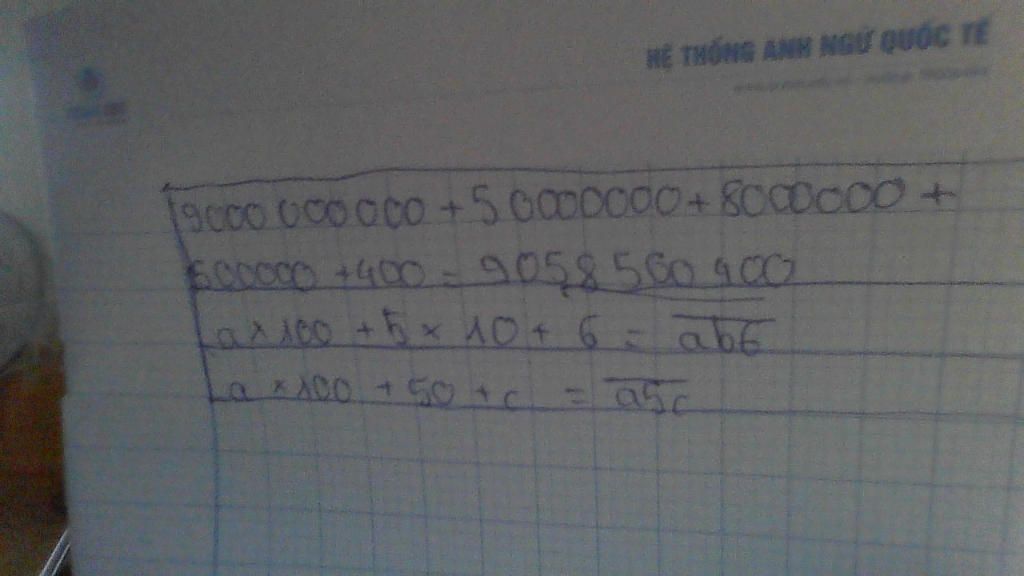 HỆ THỐNG ANH NGỮ QUỐC TẾ
9000 000000 + 50000000 + 8000000 +
500000 + 400 = 9058 560 400
a × 100 + 5 × 10 + 6 = ab6
a × 100 + 50 + c = a5c